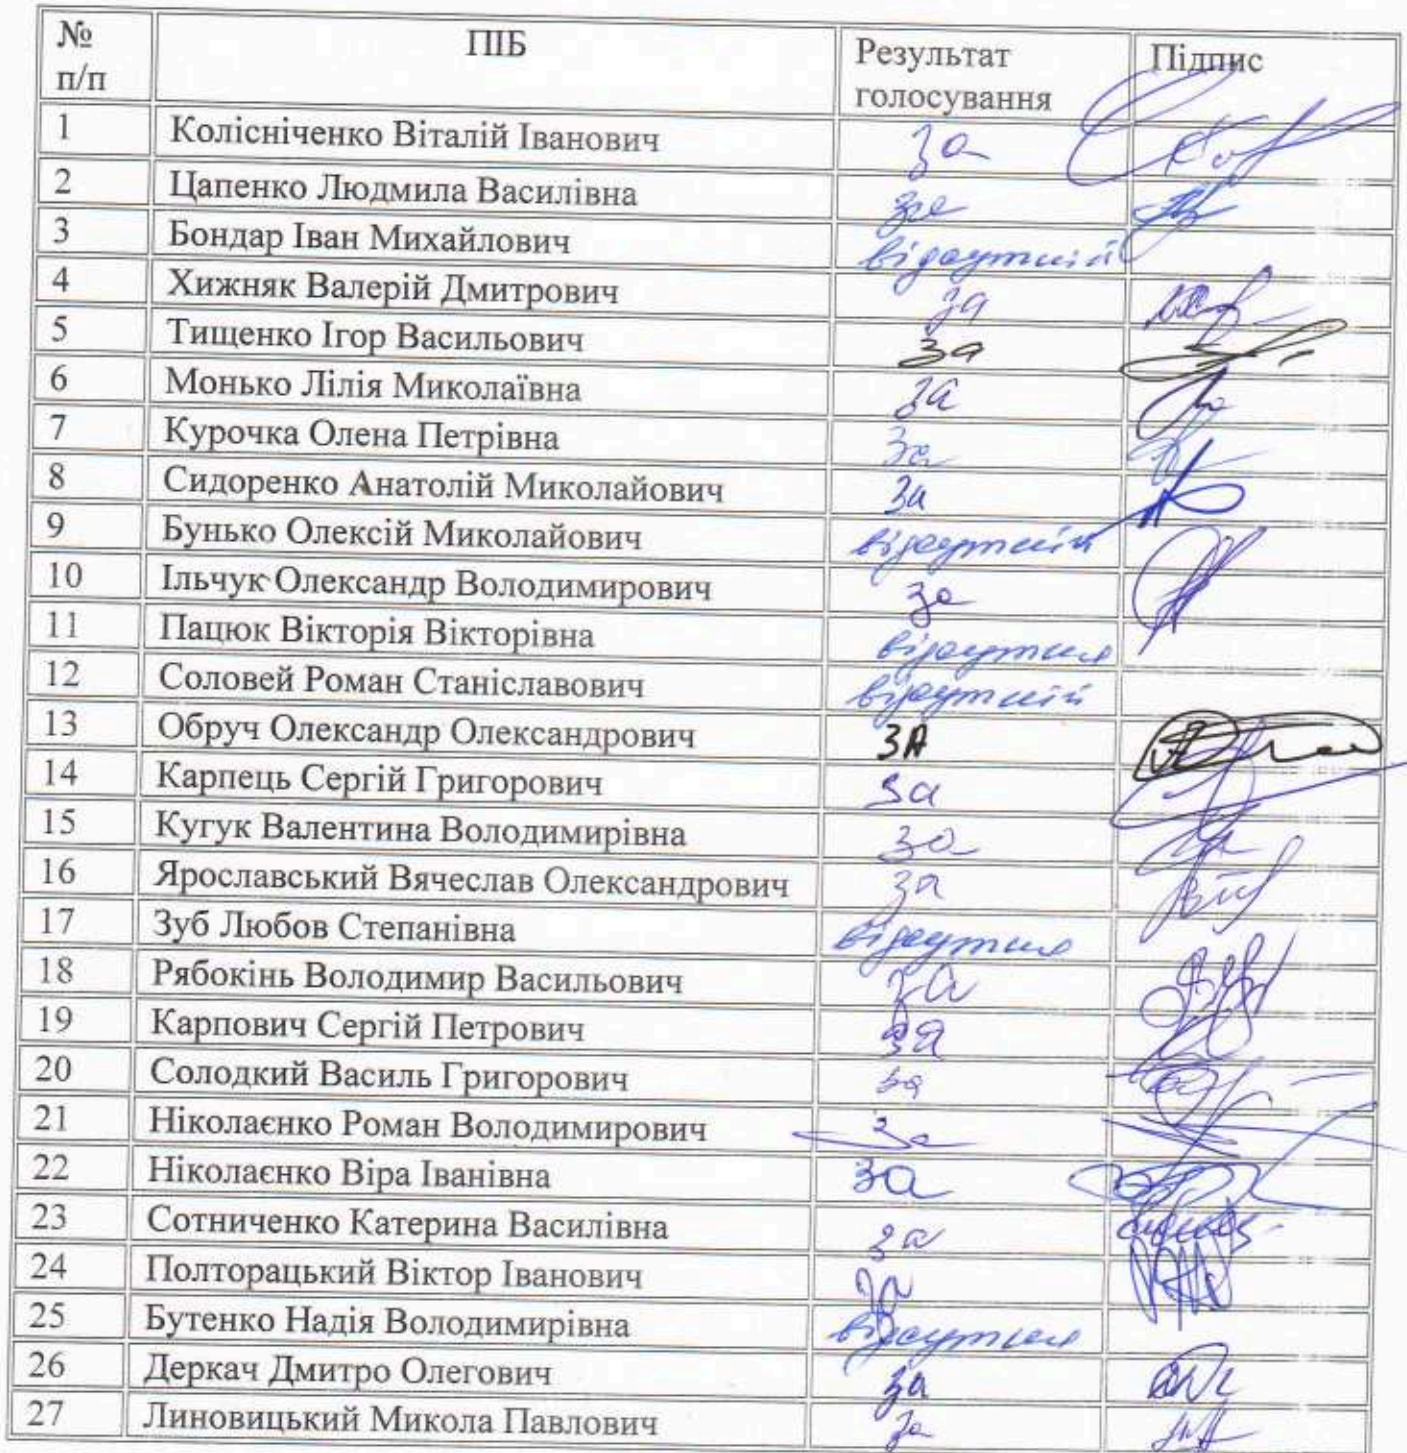 № п/п ПІБ Результат голосування Підпис
1 Колісніченко Віталій Іванович за
2 Цапенко Людмила Василівна за
3 Бондар Іван Михайлович відсутній
4 Хижняк Валерій Дмитрович за
5 Тищенко Ігор Васильович за
6 Монько Лілія Миколаївна за
7 Курочка Олена Петрівна За
8 Сидоренко Анатолій Миколайович За
9 Бунько Олексій Миколайович відсутній
10 Ільчук Олександр Володимирович За
11 Пацюк Вікторія Вікторівна відсутня
12 Соловей Роман Станіславович відсутній
13 Обруч Олександр Олександрович ЗА
14 Карпець Сергій Григорович За
15 Кугук Валентина Володимирівна за
16 Ярославський Вячеслав Олександрович за
17 Зуб Любов Степанівна відсутня
18 Рябокінь Володимир Васильович за
19 Карпович Сергій Петрович за
20 Солодкий Василь Григорович за
21 Ніколаєнко Роман Володимирович за
22 Ніколаєнко Віра Іванівна за
23 Сотниченко Катерина Василівна за
24 Полторацький Віктор Іванович за
25 Бутенко Надія Володимирівна відсутня
26 Деркач Дмитро Олегович за
27 Линовицький Микола Павлович за